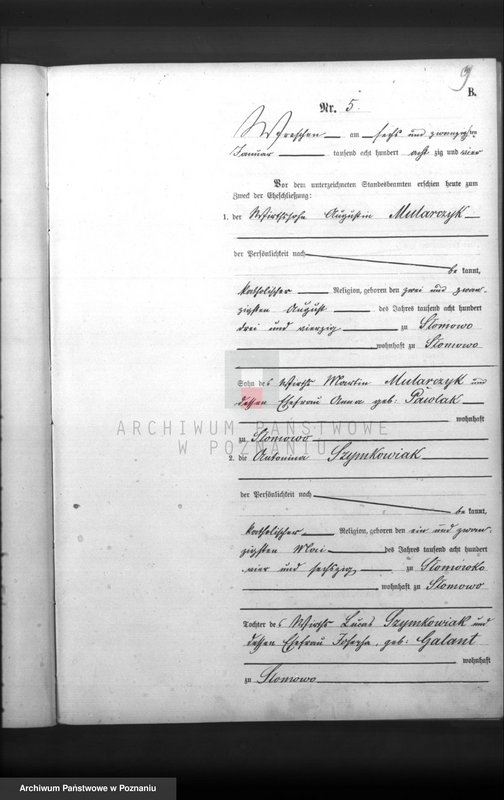 9
B.
Nr. 5.
Wreschen am sechs und zwanzigsten
Januar tausend acht hundert acht zig und vier
Vor dem unterzeichneten Standesbeamten erschien heute zum
Zweck der Eheschließung:
1. der Wirthssohn Augustin Mularczyk
der Persönlichkeit nach
be kannt,
katholischer Religion, geboren den zwei und zwan-
zigsten August des Jahres tausend acht hundert
drei und vierzig zu Słomowo
wohnhaft zu Słomowo
Sohn des Wirths Martin Mularczyk und
dessen Ehefrau Anna geb: Pawlak
wohnhaft
zu Słomowo
2. die Antonina Szymkowiak
der Persönlichkeit nach
be kannt,
katholischer Religion, geboren den ein und zwan-
zigsten Mai des Jahres tausend acht hundert
vier und sechszig zu Słomowko
wohnhaft zu Słomowo
Tochter des Wirths Lucas Szymkowiak und
dessen Ehefrau Josepha, geb: Galant
wohnhaft
zu Słomowo
ARCHIWUM PAŃSTWOWE
W POZNANIU
Archiwum Państwowe w Poznaniu